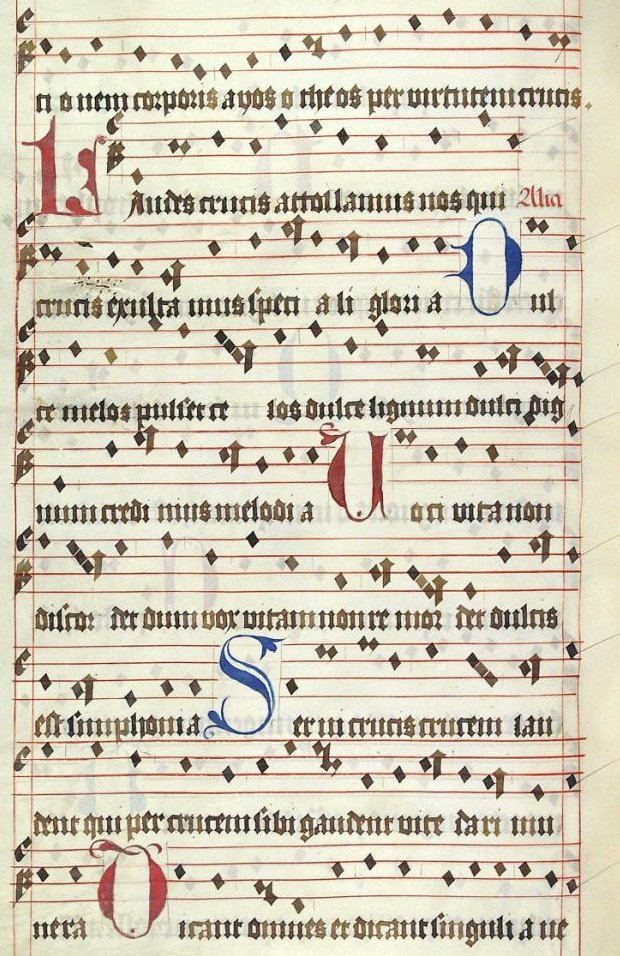 ti o nem corporis ayos o theos per virtutem crucis.
Laudes crucis attollamus nos qui Alia
crucis exulta mus speci a li glori a Dul
ce melos pulset ce los dulce lignum dulci dig
num credi mus melodi a Uoci vita non
discor det dum vox vitam non re mor det dulcis
est simphonia Serui crucis crucem lau
dent qui per crucem sibi gaudent vite da ri mu
nera Dicant omnes et dicant singuli a ue